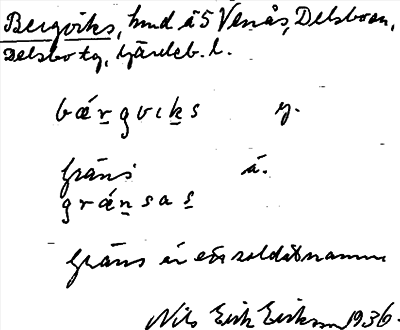 Bergviks, hmd å S Venås, Delsboån,
Delsbo tg, Gävleb. l.
bárgviks y.
Gräns ä.
gránsas
Gräns är ett soldatnamn
Nils Erik Eriksson 1936.